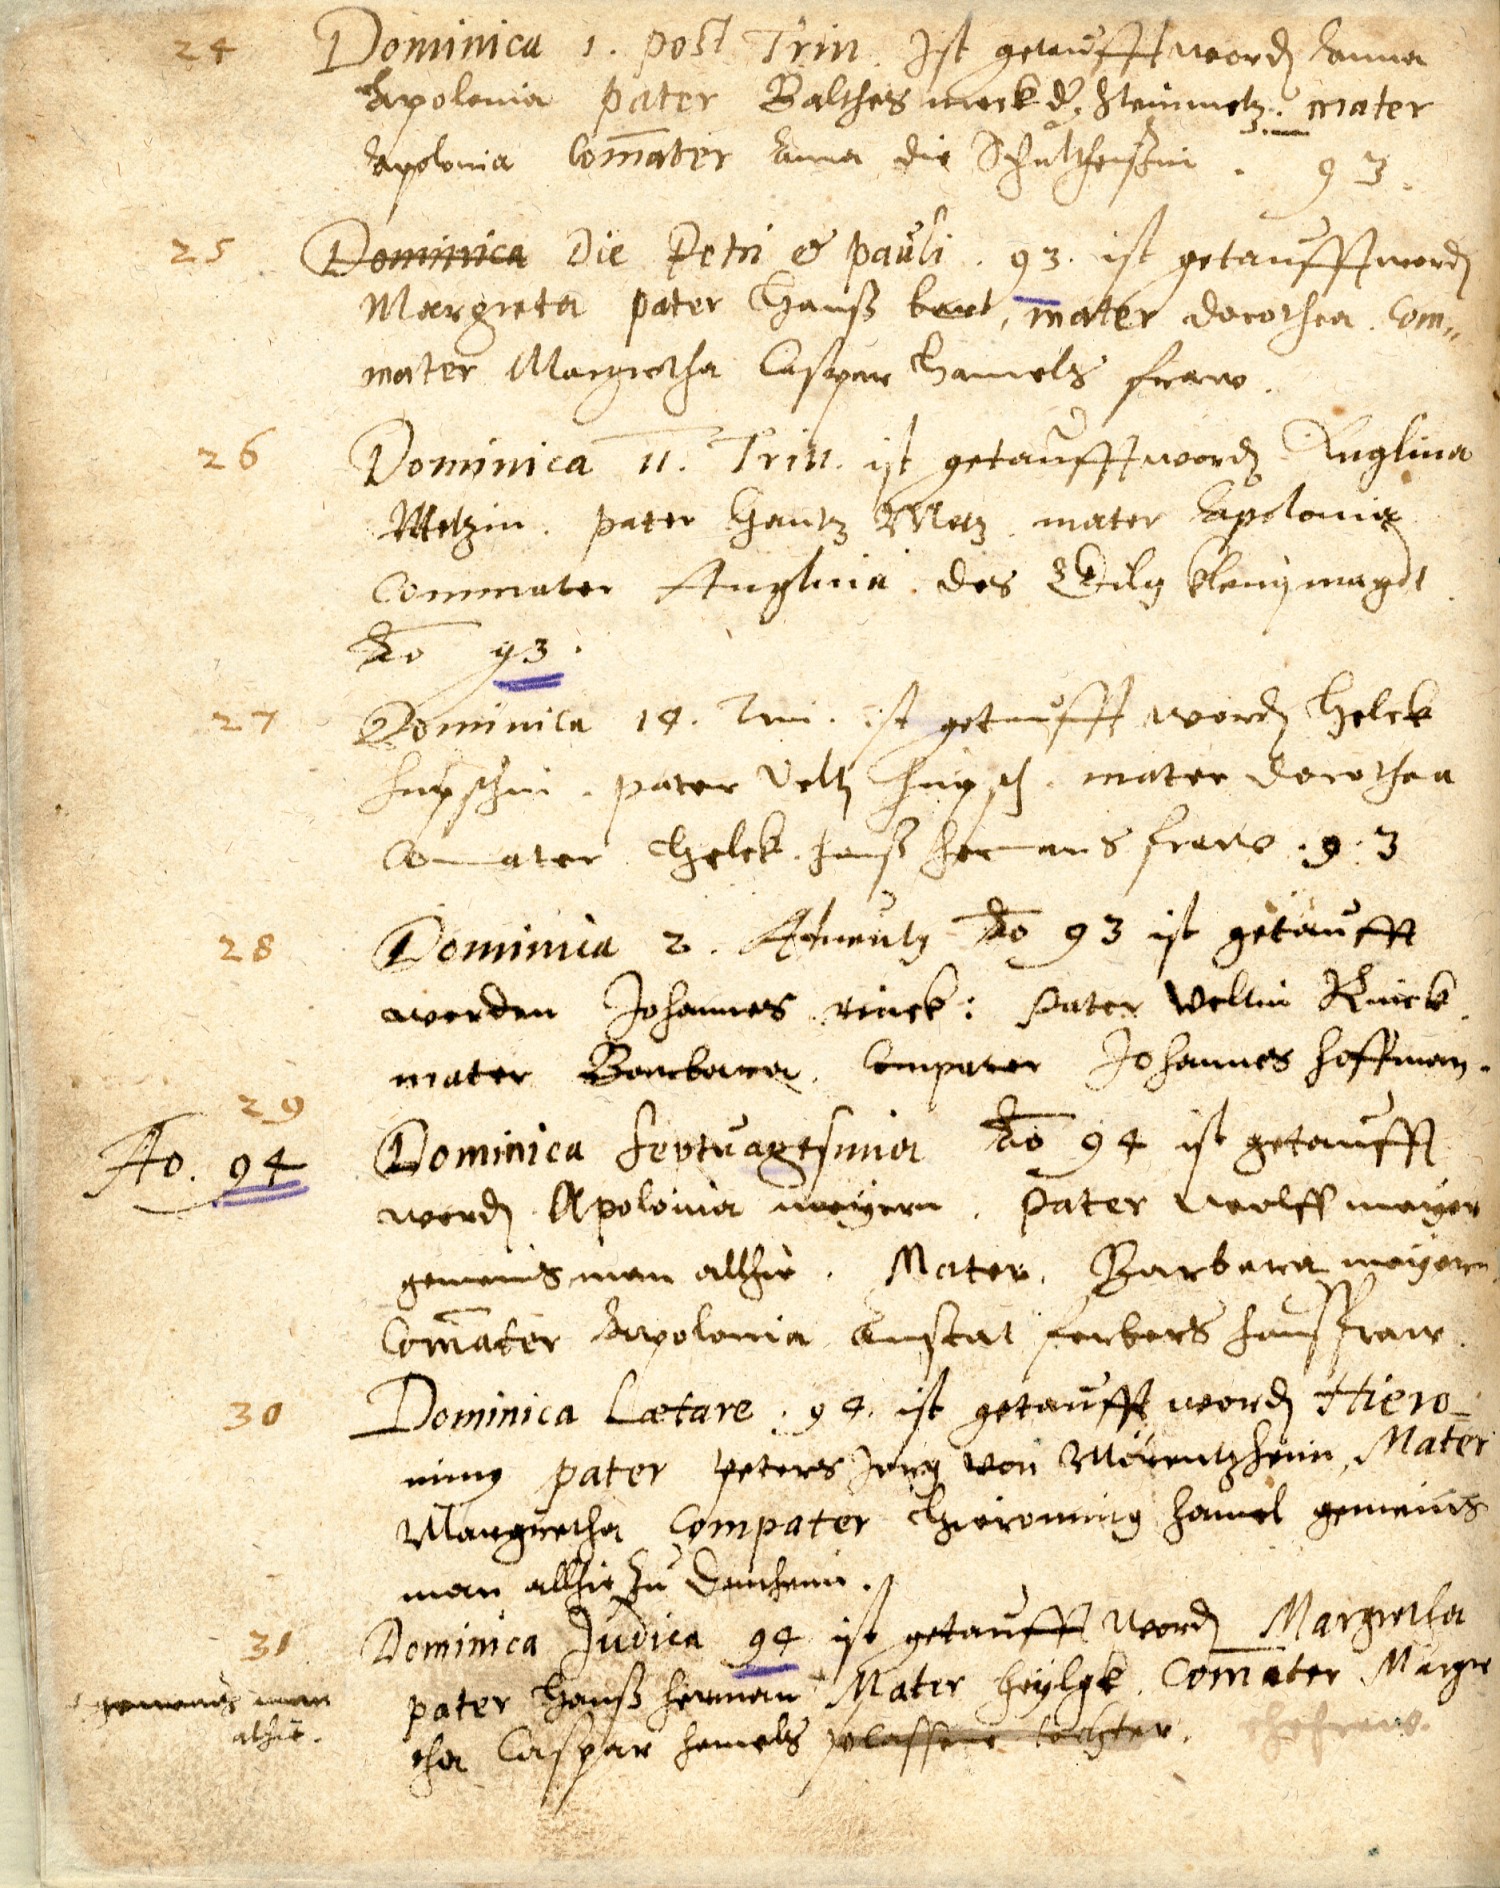 24 Dominica 1. post Trin. Ist getaufft word Anna
Apolonia pater Balthes meck d. Steinmetz. mater
Apolonia Commater Anna die Schultheißin. 93.
25 Dominica Die Petri & pauli. 93. ist getaufft word
Margreta pater Hanß bart, mater dorothea. Com„
mater Margretha Caspar Hamels fraw.
26 Dominica 11. Trin. ist getaufft word Anglina
Metzin. pater Hantz Metz. mater Apolonia
Commater Anglina des Gilg magdt
Ao 93.
27 Dominica 14. Trin. ist getaufft word Helek
pater Velt mater Dorothea
Comater Helek hanß hermans fraw. 93
28 Dominica 2. Ao 93 ist getaufft
worden Johannes rinck: Pater Veltin Rinck.
mater Barbara. Compater Johannes hoffman.
29
Ao. 94 Dominica septuagesima Ao 94 ist getaufft
word Apolonia meyern. Pater wolff meyer
gemeinsman allhie. Mater. Barbara meyern.
Commater Apolonia Anstat ferbers haußfraw.
30 Dominica Lætare. 94. ist getaufft word Hiero-
nimg pater peters Jerg von Mörentzheim, Mater
Margretha Compater Hieroning hamel gemeins
man allhie zu
31 Dominica Judica 94 ist getaufft word Margretha
pater Hanß herman Mater heylgk. Commater Margre
gemeins man
alhie.
tha Caspar hamels tochter. ehefraw.